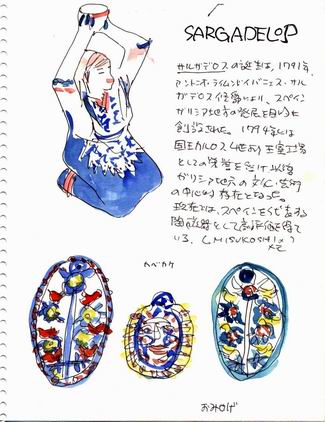 SARGADELOP
サルガデロスの誕生は、1791年
アントニオ・ライムンド・イバニェス・サル
ガデロス侯爵により、スペイン
ガリシア地方の発展を目的に
創設された。1794年には
国王カルロス4世より王室工場
としての栄誉を受け以後
ガリシア地方の文化・芸術
の中心的存在となった。
現在では、スペインを代表する
陶磁器として高い評価を得て
いる。(MISUKOSHI
カベカケ
おみやげ